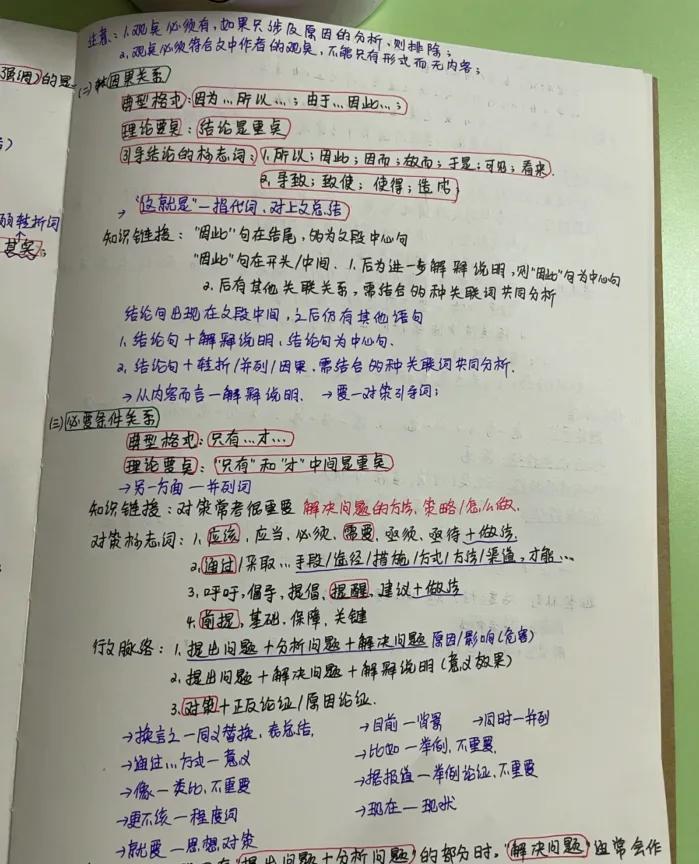 注意：1.观点必须有，如果只涉及原因的分析，则排除；
2.观点必须符合文中作者的观点，不能只有形式而无内容；
强调)的是
(二)因果关系
典型格式：因为…所以…；由于…因此…；
理论要点：结论是重点
引导结论的标志词：1.所以；因此；因而；故而；于是；可见；看来.
2.导致；致使；使得；造成；
→“这就是”—指代词，对上文总结
转折词
其实
知识链接："因此"句在结尾，的为文段中心句
"因此"句在开头/中间. 1.后为进一步解释说明，则"因此"句为中心句
2.后有其他关联关系，需结合的种关联词共同分析
结论句出现在文段中间，之后仍有其他语句
1.结论句+解释说明，结论句为中心句.
2.结论句+转折/并列/因果.需结合的种关联词共同分析.
→从内容而言—解释说明. →要—对策引导词；
(三)必要条件关系
典型格式：只有…才…
理论要点："只有"和"才"中间是重点
→另一方面—并列词
知识链接：对策常考很重要 解决问题的方法、策略/怎么做.
对策标志词：1.应该，应当、必须、需要、亟须、亟待+做法
2.通过/采取…手段/途径/措施/方式/方法/渠道，才能…
3.呼吁，倡导，提倡、提醒，建议+做法
4.前提，基础、保障、关键
行文脉络：1.提出问题+分析问题+解决问题 原因/影响(危害)
2.提出问题+解决问题+解释说明(意义效果)
3.对策+正反论证/原因论证.
→换言之—同义替换，表总结. →目前—背景 →同时—并列
→通过…方式—意义 →比如—举例，不重要.
→像—类比，不重要 →据报道—举例论证，不重要
→更不该—程度词 →现在—现状
→就要—思想对策
提出问题+分析问题)的部分时，"解决问题"通常会作